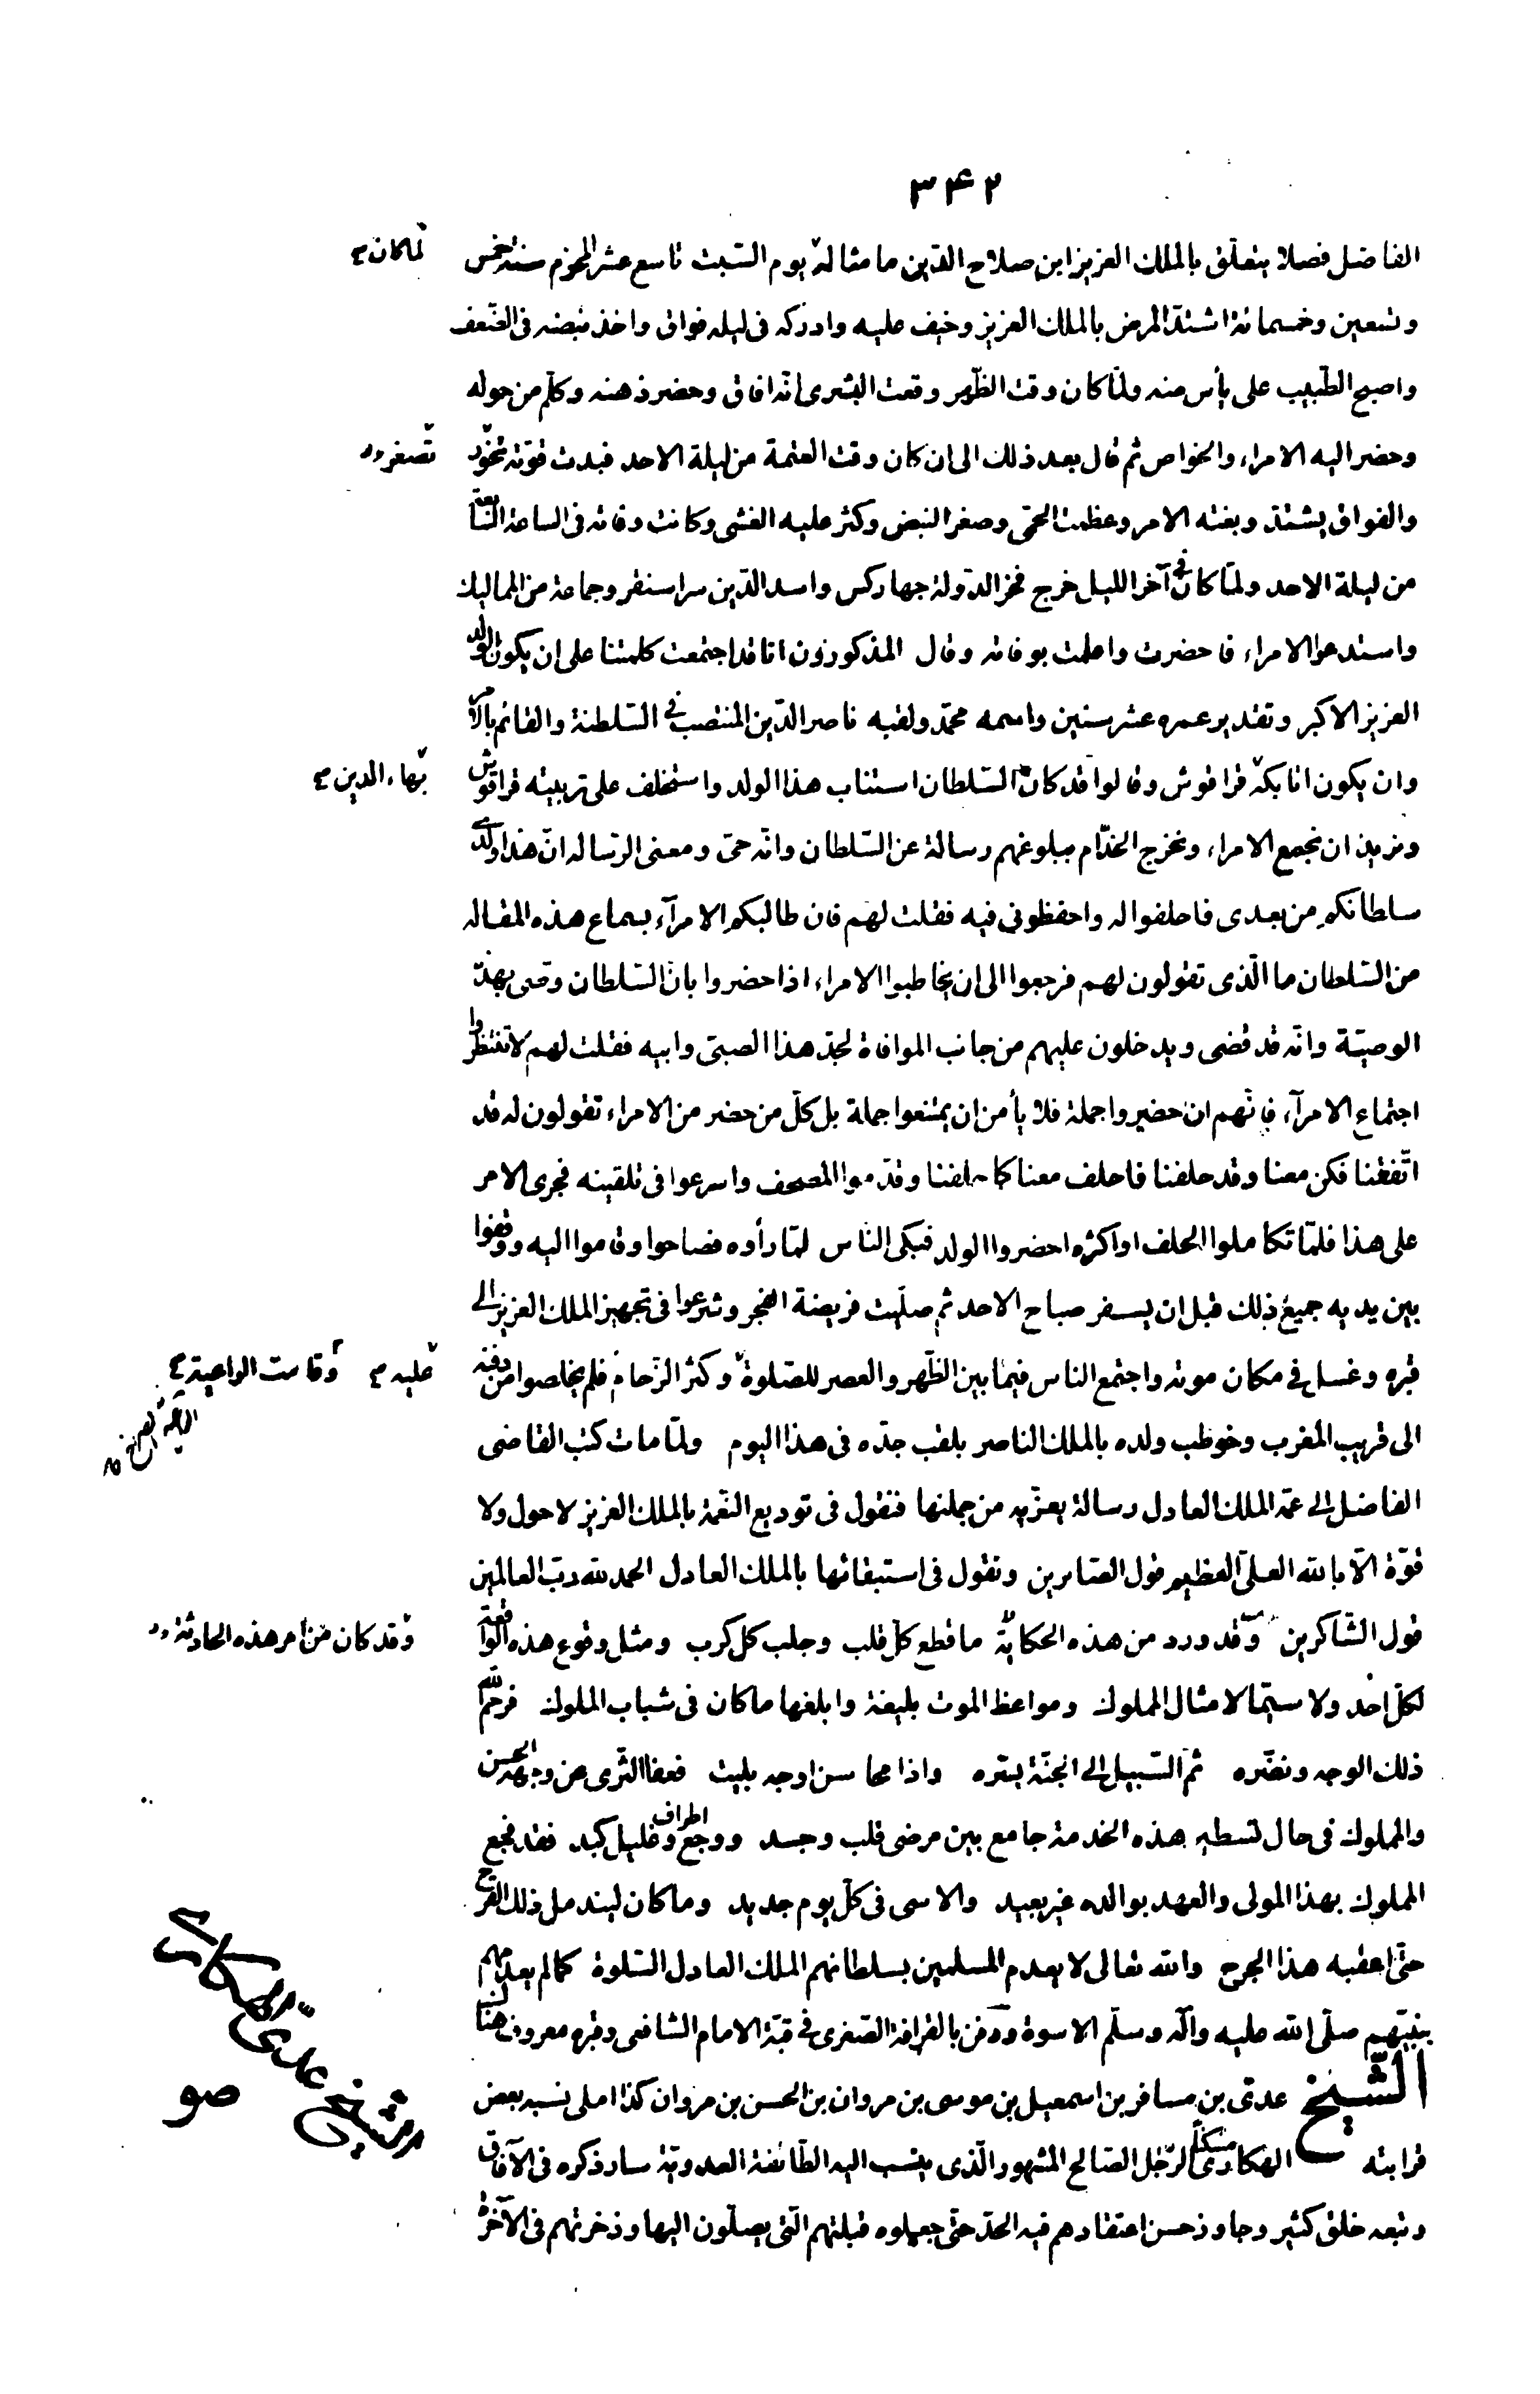 ۳۴۲
الفاضل فصلا يتعلّق بالملك العزيز ابن صلاح الدّين ما مثاله يوم السّبت تاسع عشر المحرّم سنة خمس
وتسعين وخمسمائة اشتدّ المرض بالملك العزيز وخيف عليه وادركه فى ليله فواق واخذ نبضه فى الضّعف
واصبح الطّبيب على يأس منه ولمّا كان وقت الظّهر وقعت البشرى انّه افاق وحضر ذهنه وكلّم من حوله
وحضر اليه الامراء والخواص ثم قال بعد ذلك الى ان كان وقت العتمة من ليلة الاحد فبدت قوّته تخوّر
والفواق يشتدّ وبغته الامر وعظمت الحمّى وصغر النبض وكثر عليه الغشى وكانت وفاته فى الساعة السّابعة
من ليلة الاحد ولمّا كان فى آخر الليل خرج فخر الدّولة جهاركس واسد الدّين سراسنقر وجماعة من المماليك
واستدعوا الامراء فاحضرت واعلمت بوفاته وقال المذكورون انّا قد اجتمعت كلمتنا على ان يكون الولد
العزيز الاكبر وتقدير عمره عشر سنين واسمه محمّد ولقبه ناصر الدّين المنتصب فى السّلطنة والقائم بالامر
وان يكون اتابكه قراقوش وقالوا قد كان السّلطان استناب هذا الولد واستخلف على تربيته قراقوش
ونريد ان نجمع الامراء ونخرج الخدّام مبلوغهم رسالة عن السّلطان وانّه حىّ ومعنى الرّساله انّ هذا ولدى
سلطانكم من بعدى فاحلفوا له واحفظونى فيه فقلت لهم فان طالبكم الامرآء بسماع هذه المقاله
من السّلطان ما الّذى تقولون لهم فرجعوا الى ان يخاطبوا الامراء اذا حضروا بانّ السّلطان وصّى بهذه
الوصيّة وانّه قد قضى ويدخلون عليهم من جانب الموافاة لجدّ هذا الصبىّ وابيه فقلت لهم لا تنتظروا
اجتماع الامرآء فانّهم ان حضروا جملة فلا يأمن ان يمتنعوا جملة بل كلّ من حضر من الامراء تقولون له قد
اتّفقنا فكن معنا وقد حلفنا فاحلف معنا كما حلفنا وقدّموا المصحف واسرعوا فى تلقينه فجرى الامر
على هذا فلمّا تكاملوا الحلف او اكثره احضروا الولد فبكى النّاس لمّا رأوه فصاحوا وقاموا اليه ووقفوا
بين يديه جميع ذلك قبل ان يسفر صباح الاحد ثم صلّيت فريضة الفجر وشرعوا فى تجهيز الملك العزيز الى
قبره وغسل فى مكان موته واجتمع الناس فيما بين الظّهر والعصر للصّلوة وكثر الزّحام فلم يخلصوا من دفنه
الى قريب المغرب وخوطب ولده بالملك الناصر بلقب جدّه فى هذا اليوم ولمّا مات كتب القاضى
الفاضل الى عمّه الملك العادل رسالة يعزّيه من جملتها فنقول فى توديع النّعمة بالملك العزيز لا حول ولا
قوّة الّا بالله العلىّ العظيم قول الصّابرين ونقول فى استبقائها بالملك العادل الحمد لله ربّ العالمين
قول الشّاكرين وقد ورد من هذه الحكاية ما قطع كلّ قلب وجلب كل كرب ومثل وقوع هذه الواقعة
لكلّ احد ولا سيّما لامثال المملوك ومواعظ الموت بليغة وابلغها ما كان فى شباب الملوك فرحم الله
ذلك الوجه ونضّره ثمّ السّبيل الى الجنّة يسّره واذا محاسن اوجه بليت فعفا الثّرى عن وجهه الحسن
والمملوك فى حال تسطير هذه الخدمة جامع بين مرضى قلب وجسد ووجع اطراف وغليل كبد فقد فجع
المملوك بهذا المولى والعهد بوالده غير بعيد والاسى فى كلّ يوم جديد وما كان ليندمل ذلك القرح
حتّى اعقبه هذا الجرح والله تعالى لا يعدم المسلمين بسلطانهم الملك العادل السّلوة كما لم يعدمهم
بنبيّهم صلّى الله عليه وآله وسلّم الاسوة ودفن بالقرافة الصّغرى فى قبّة الامام الشافعى وقبره معروف هناك
الشّيخ عدىّ بن مسافر بن اسمعيل بن موسى بن مروان بن الحسن بن مروان كذا املى نسبه بعض
قرابته الهكارى مسكناً الرّجل الصّالح المشهور الّذى ينتسب اليه الطّائفة العدويّة سار ذكره فى الآفاق
وتبعه خلق كثير وجاوز حسن اعتقادهم فيه الحدّ حتّى جعلوه قبلتهم الّتى يصلّون اليها وذخرتهم فى الآخرة
تصغر
بهاء الدين
عليه
وقامت الواعية
وقد كان من امر هذه الحادثة
الشيخ عدى الهكارى